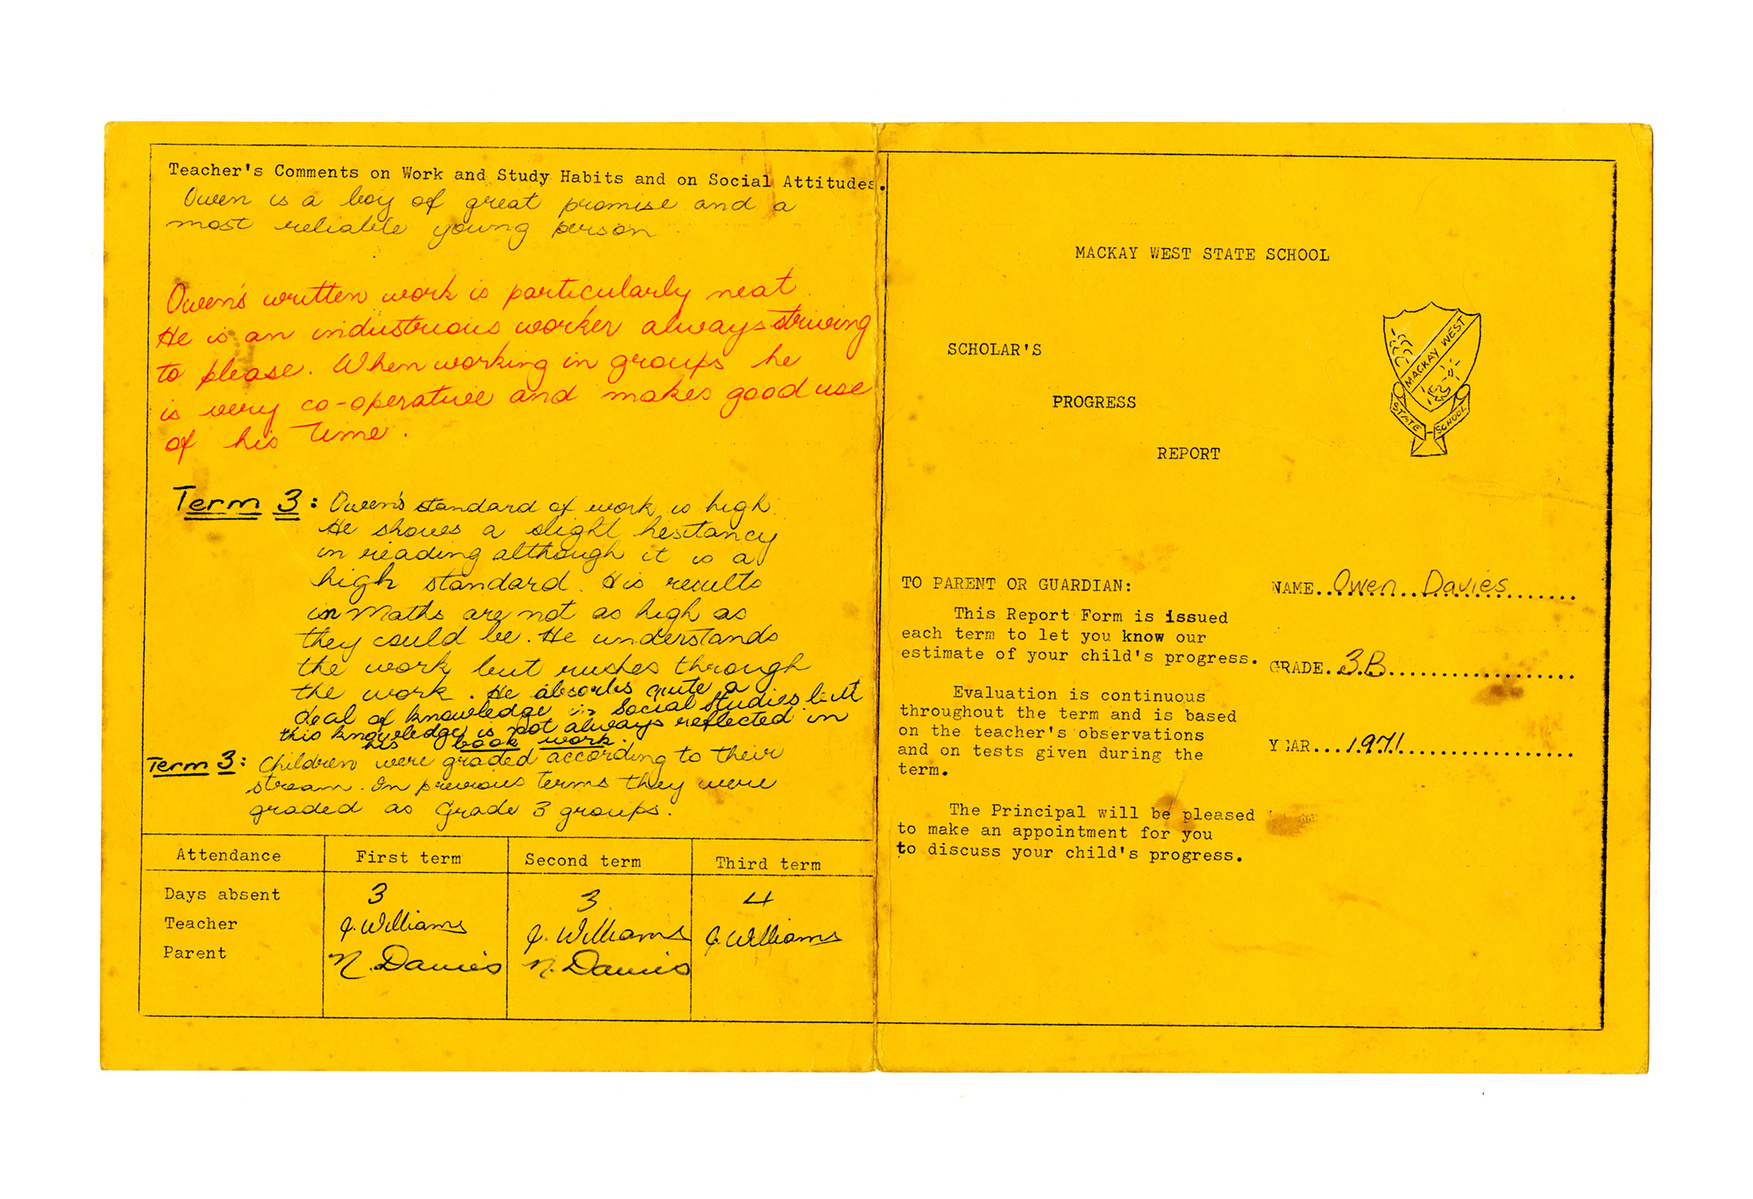 Teacher's Comments on Work and Study Habits and on Social Attitudes.
Owen is a boy of great promise and a
most reliable young person
Owen's written work is particularly neat.
He is an industruous worker always striving
to please. When working in groups he
is very co-operative and makes good use
of his time.
Term 3: Owen's standard of work is high.
He shows a slight hesitancy
in reading although it is a
high standard. His results
in Maths are not as high as
they could be. He understands
the work but rushes through
the work. He absorbs quite a
deal of knowledge in Social Studies but
this knowledge is not always reflected in
his book work.
Term 3: Children were graded according to their
stream. In previous terms they were
graded as Grade 3 groups.
Attendance First term Second term Third term
Days absent 3 3 4
Teacher J. Williams J. Williams J. Williams
Parent N. Davies N. Davies
MACKAY WEST STATE SCHOOL
SCHOLAR'S
PROGRESS
REPORT
MACKAY WEST
STATE SCHOOL
TO PARENT OR GUARDIAN:
This Report Form is issued
each term to let you know our
estimate of your child's progress.
Evaluation is continuous
throughout the term and is based
on the teacher's observations
and on tests given during the
term.
The Principal will be pleased
to make an appointment for you
to discuss your child's progress.
NAME..Owen Davies
GRADE..3B
YEAR...1971